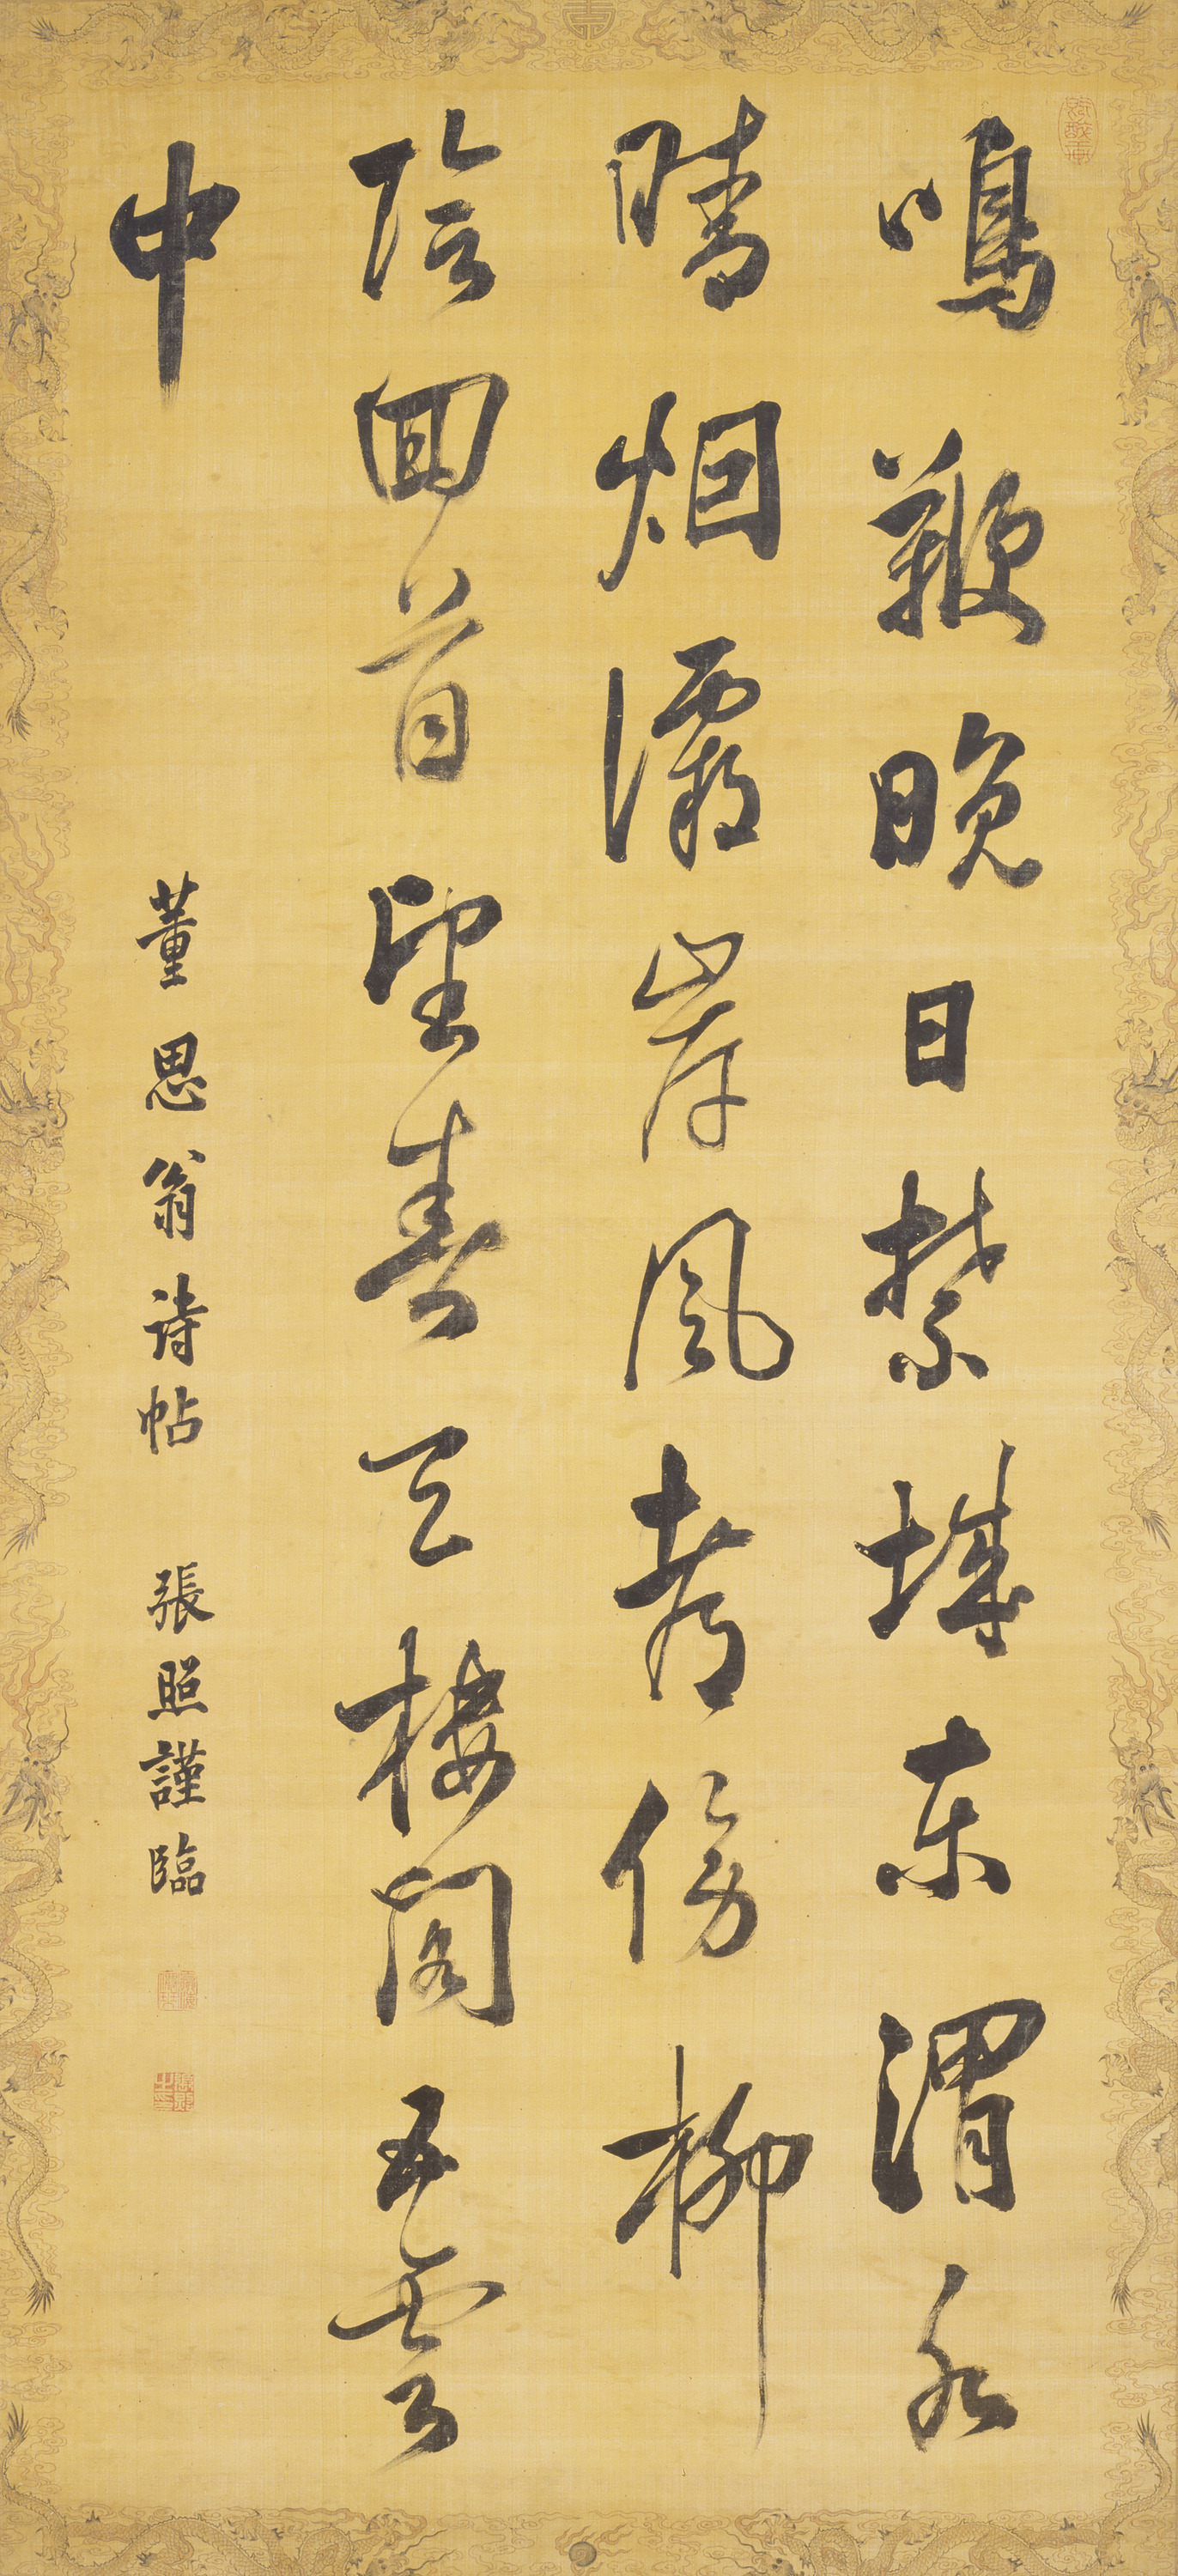 鳴鞭晚日禁城東渭水
晴烟灞岸風都傍柳
陰回首望春天樓閣五雲
中
董思翁詩帖 張照謹臨